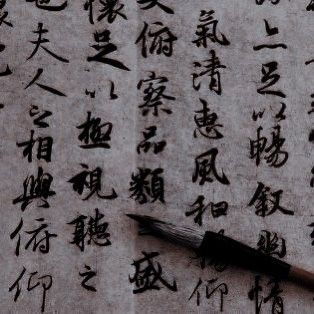 亦足以暢敘幽情
氣清惠風和暢仰
大俯察品類之盛
懷足以極視聽之
也夫人之相與俯仰